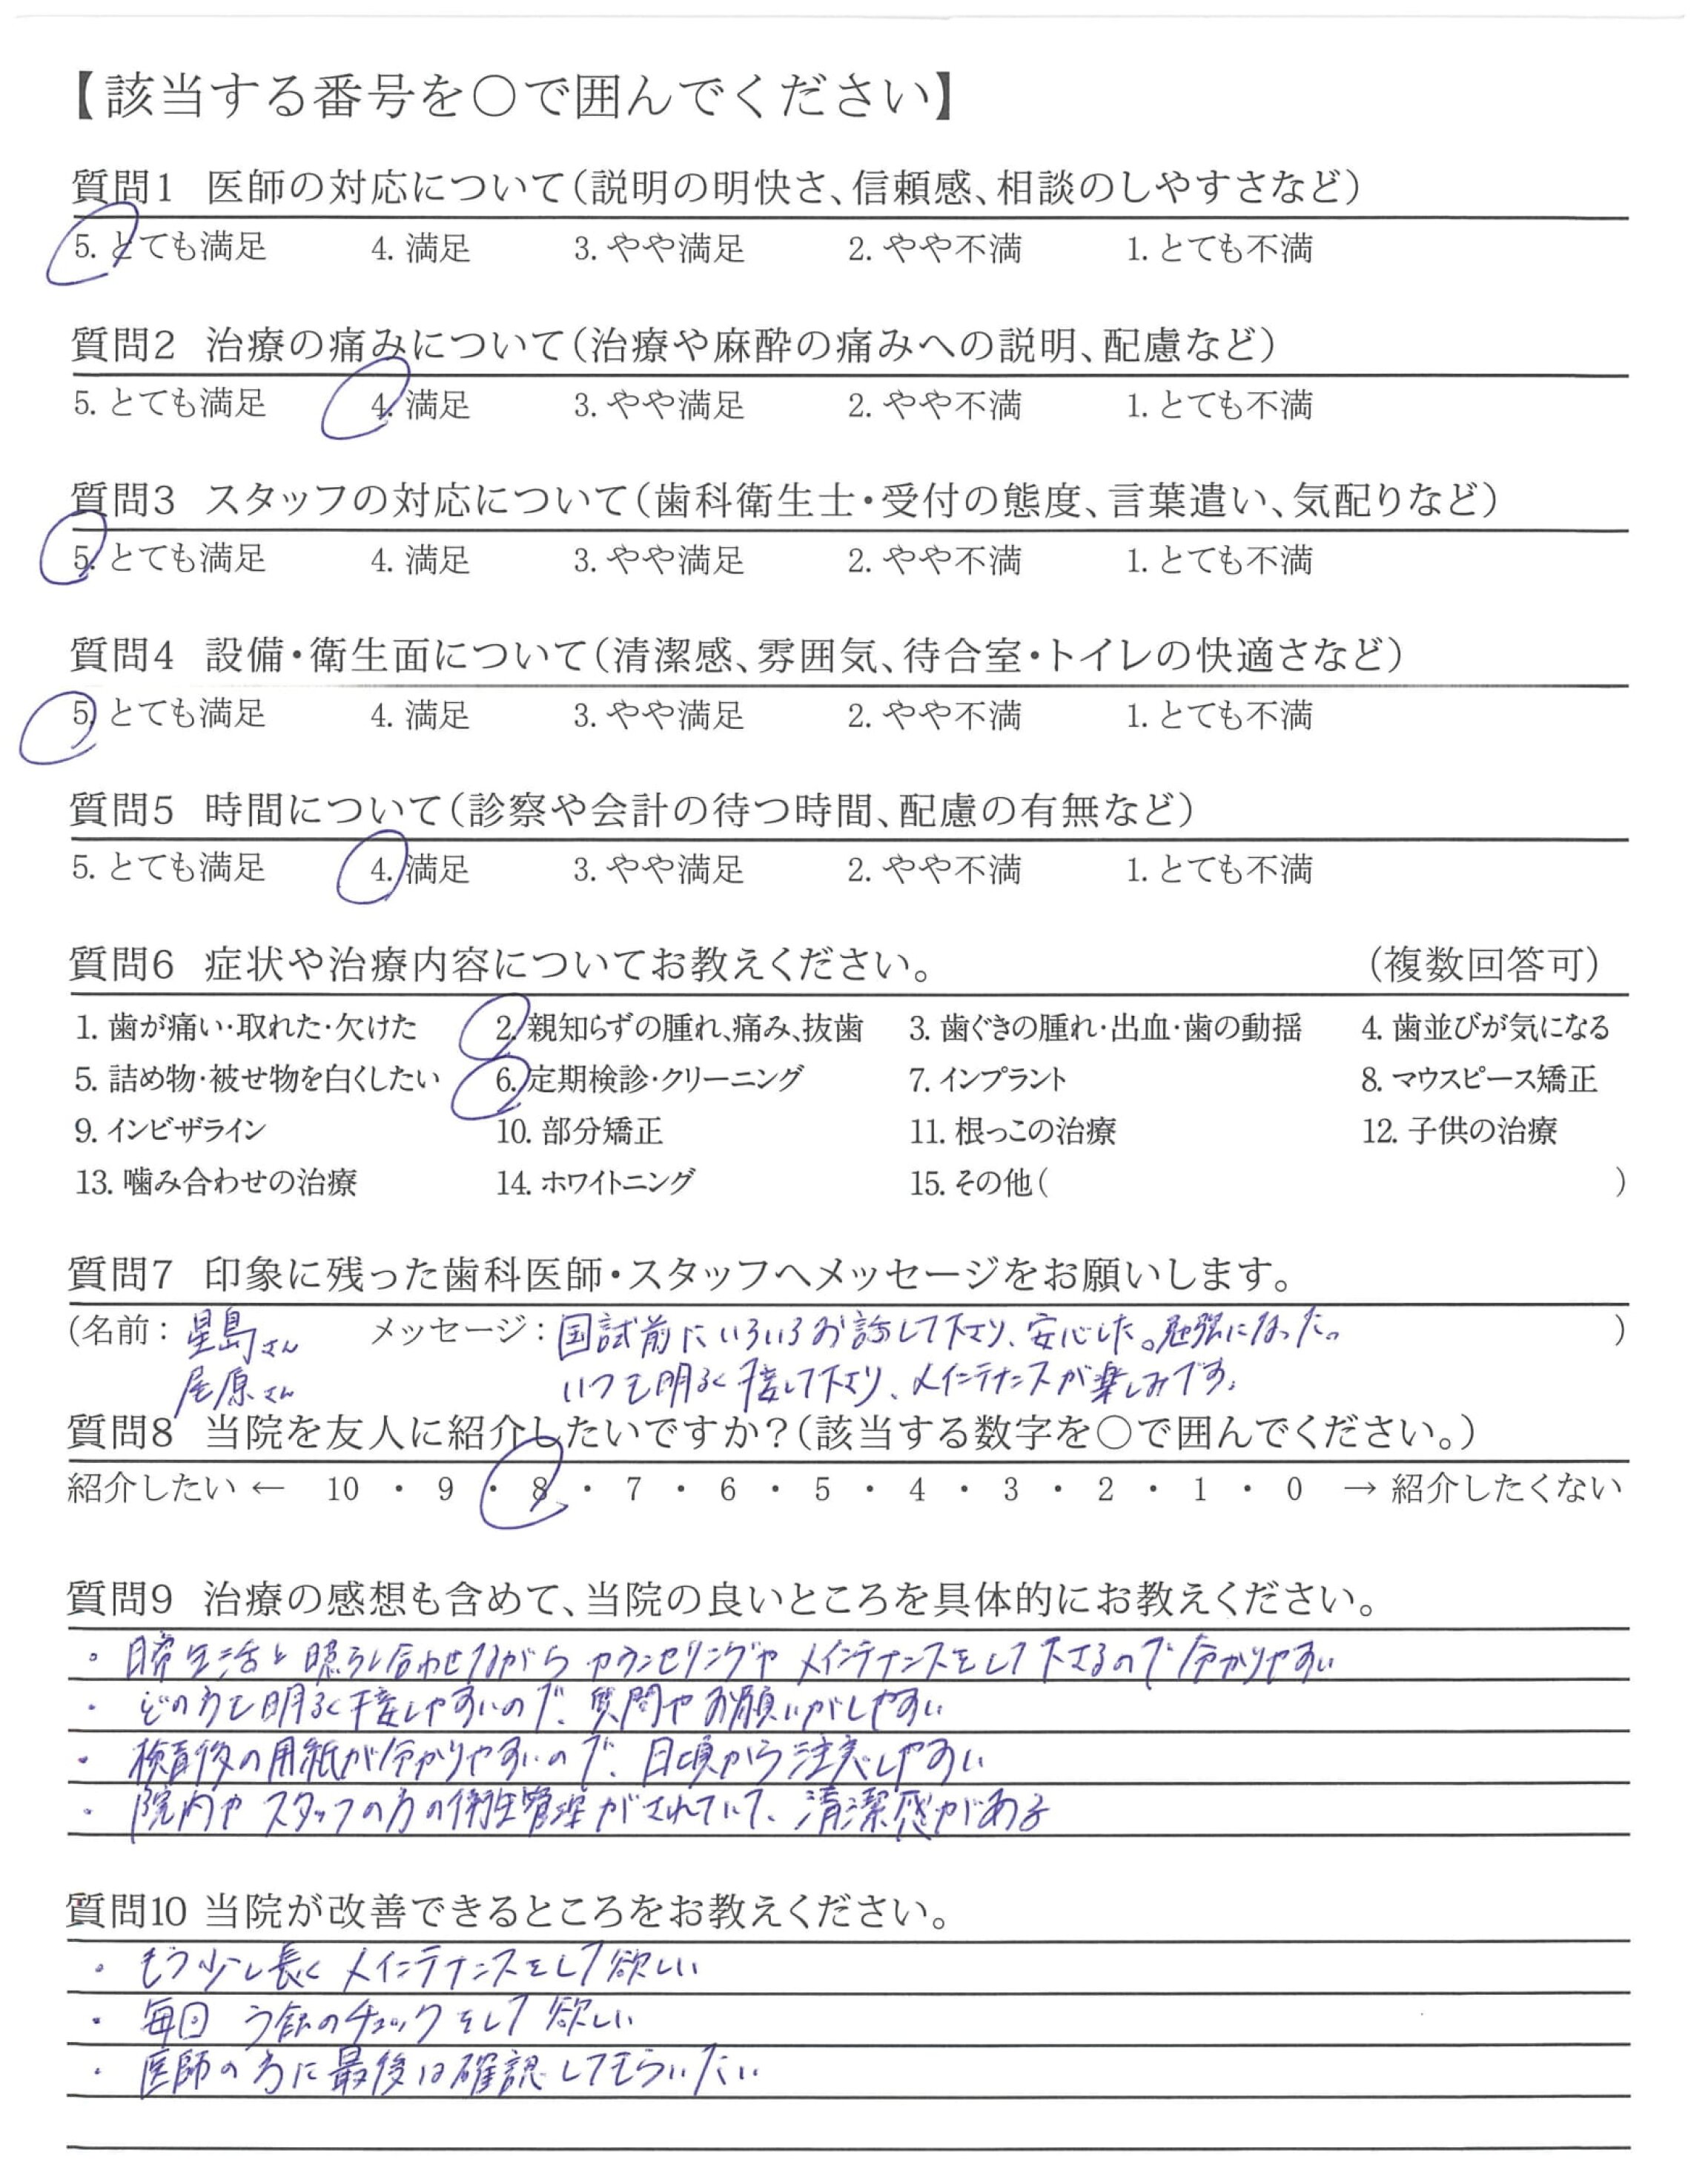 【該当する番号を○で囲んでください】
質問1 医師の対応について（説明の明快さ、信頼感、相談のしやすさなど）
5. とても満足 4. 満足 3. やや満足 2. やや不満 1. とても不満
質問2 治療の痛みについて（治療や麻酔の痛みへの説明、配慮など）
5. とても満足 4. 満足 3. やや満足 2. やや不満 1. とても不満
質問3 スタッフの対応について（歯科衛生士・受付の態度、言葉遣い、気配りなど）
5. とても満足 4. 満足 3. やや満足 2. やや不満 1. とても不満
質問4 設備・衛生面について（清潔感、雰囲気、待合室・トイレの快適さなど）
5. とても満足 4. 満足 3. やや満足 2. やや不満 1. とても不満
質問5 時間について（診察や会計の待つ時間、配慮の有無など）
5. とても満足 4. 満足 3. やや満足 2. やや不満 1. とても不満
質問6 症状や治療内容についてお教えください。 （複数回答可）
1. 歯が痛い・取れた・欠けた 2. 親知らずの腫れ、痛み、抜歯 3. 歯ぐきの腫れ・出血・歯の動揺 4. 歯並びが気になる
5. 詰め物・被せ物を白くしたい 6. 定期検診・クリーニング 7. インプラント 8. マウスピース矯正
9. インビザライン 10. 部分矯正 11. 根っこの治療 12. 子供の治療
13. 噛み合わせの治療 14. ホワイトニング 15. その他（ ）
質問7 印象に残った歯科医師・スタッフへメッセージをお願いします。
（名前： 星島さん メッセージ： 国試前にいろいろお話して下さり、安心した。勉強になった。 ）
尾原さん いつも明るく接して下さり、メインテナンスが楽しみです。
質問8 当院を友人に紹介したいですか？（該当する数字を○で囲んでください。）
紹介したい ← 10 ・ 9 ・ 8 ・ 7 ・ 6 ・ 5 ・ 4 ・ 3 ・ 2 ・ 1 ・ 0 → 紹介したくない
質問9 治療の感想も含めて、当院の良いところを具体的にお教えください。
・ 日常生活と照らし合わせながらカウンセリングや メインテナンスをして下さるので分かりやすい
・ どの方も明るく接しやすいので、質問やお願いがしやすい
・ 検査後の用紙が分かりやすいので、日頃から注意しやすい
・ 院内や スタッフの方の衛生管理がされていて、清潔感がある
質問10 当院が改善できるところをお教えください。
・ もう少し長く メインテナンスをして欲しい
・ 毎回 う蝕のチェックをして欲しい
・ 医師の方に最後は確認してもらいたい